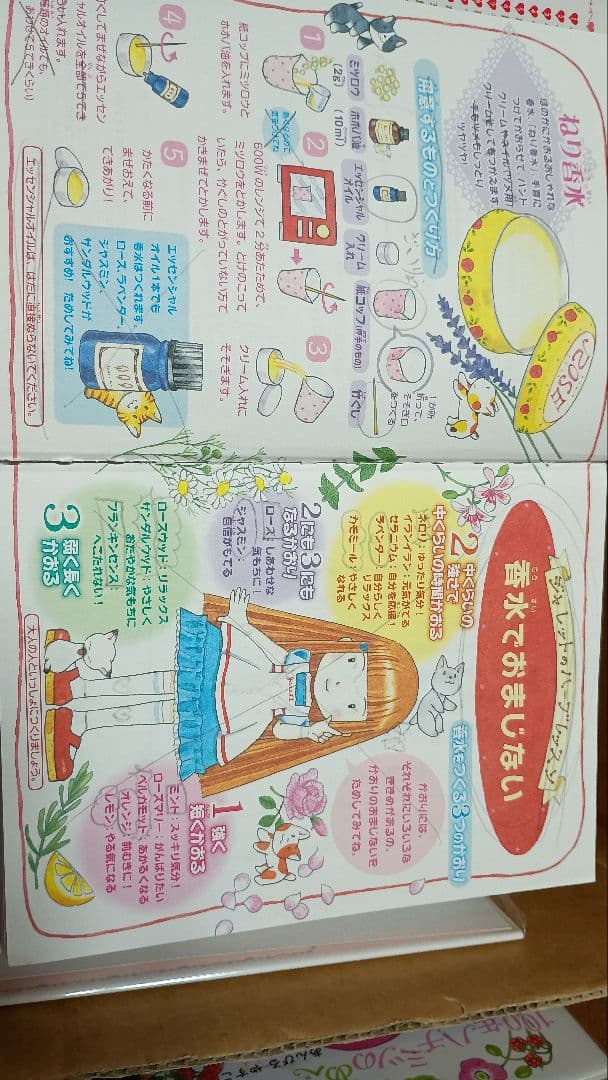 ジャレットのハーブレッスン
香水でおまじない
こうすい
香水をつくる3つのかおり
かおりには、
それぞれにいろいろな
ききめがあるの。
かおりのおまじないを
ためしてみてね。
1 強く
短くかおる
ミント：スッキリ気分！
ローズマリー：がんばりたい
ベルガモット：あかるくなる
オレンジ：前むきに！
レモン：やる気になる
2 中くらいの
強さで
中くらいの時間かおる
ネロリ：ゆったり気分！
イランイラン：元気がでる
ゼラニウム：自分を応援！
ラベンダー：自分らしく
リラックス
カモミール：やさしく
なれる
2にも3にも
なるかおり
ローズ：しあわせな
気もちに！
ジャスミン：
自信がもてる
3 弱く長く
かおる
ローズウッド：リラックス
サンダルウッド：やさしく
おだやかな気もちに
フランキンセンス：
へこたれない！
大人の人といっしょにつくりましょう。
ねり香水
ほのかにかおるおしゃれな
香水「ねり香水」。手首に
つけてかおらせて。ハンド
クリームやネイル(ツメ用)
クリームとしてもつかえます。
手もツメもしっとり
ツヤツヤ！
ROSE
用意するものとつくり方
ミツロウ
(2g)
ホホバ油
(10ml)
エッセンシャル
オイル
クリーム
入れ
紙コップ(厚手のもの)
竹ぐし
1か所
折って、
そそぎ口
をつくる
1
紙コップにミツロウと
ホホバ油を入れます。
2
600Wのレンジで2分あたためて、
ミツロウをとかします。とけのこって
いたら、竹ぐしのとがっていない方で
かきまぜてとかします。
3
クリーム入れに
そそぎます。
4
5
かたくなる前に
まぜおえて、
できあがり！
エッセンシャル
オイル1本でも
香水はつくれます。
ローズ、ラベンダー、
ジャスミン、
サンダルウッドが
おすすめ！ ためしてみてね！
エッセンシャルオイルは、はだに直接ぬらないでください。
あんびるやすこ